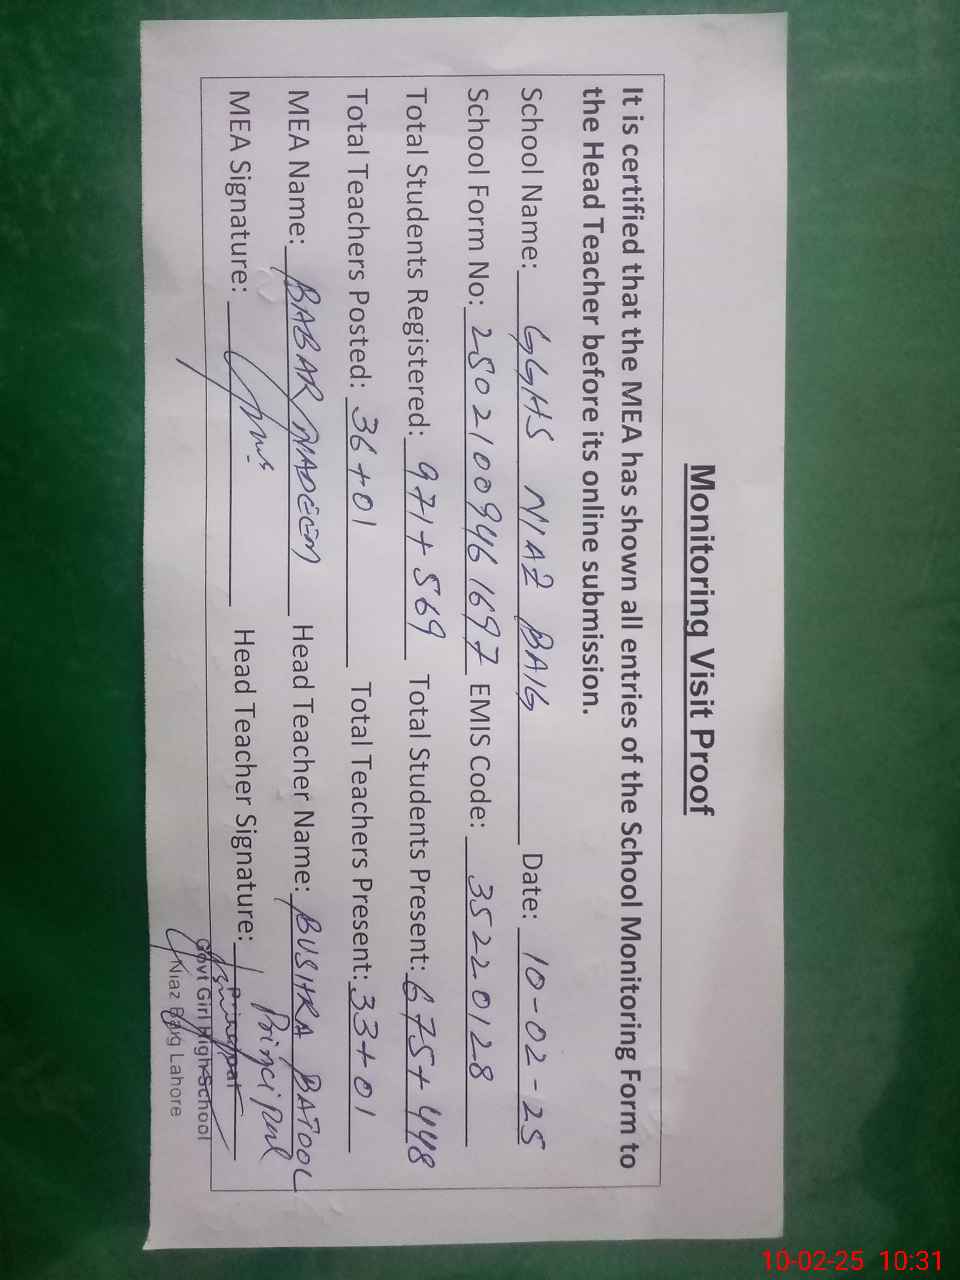 Monitoring Visit Proof
It is certified that the MEA has shown all entries of the School Monitoring Form to
the Head Teacher before its online submission.
School Name: GGHS NIAZ BAIG Date: 10-02-25
School Form No: 250210094616 97 EMIS Code: 35220128
Total Students Registered: 971+569 Total Students Present: 675+448
Total Teachers Posted: 36+01 Total Teachers Present: 33+01
MEA Name: BABAR NADEEM Head Teacher Name: BUSHRA BATOOL
MEA Signature: Head Teacher Signature: Principal
Principal
Govt Girl High School
Niaz Baig Lahore
10-02-25 10:31